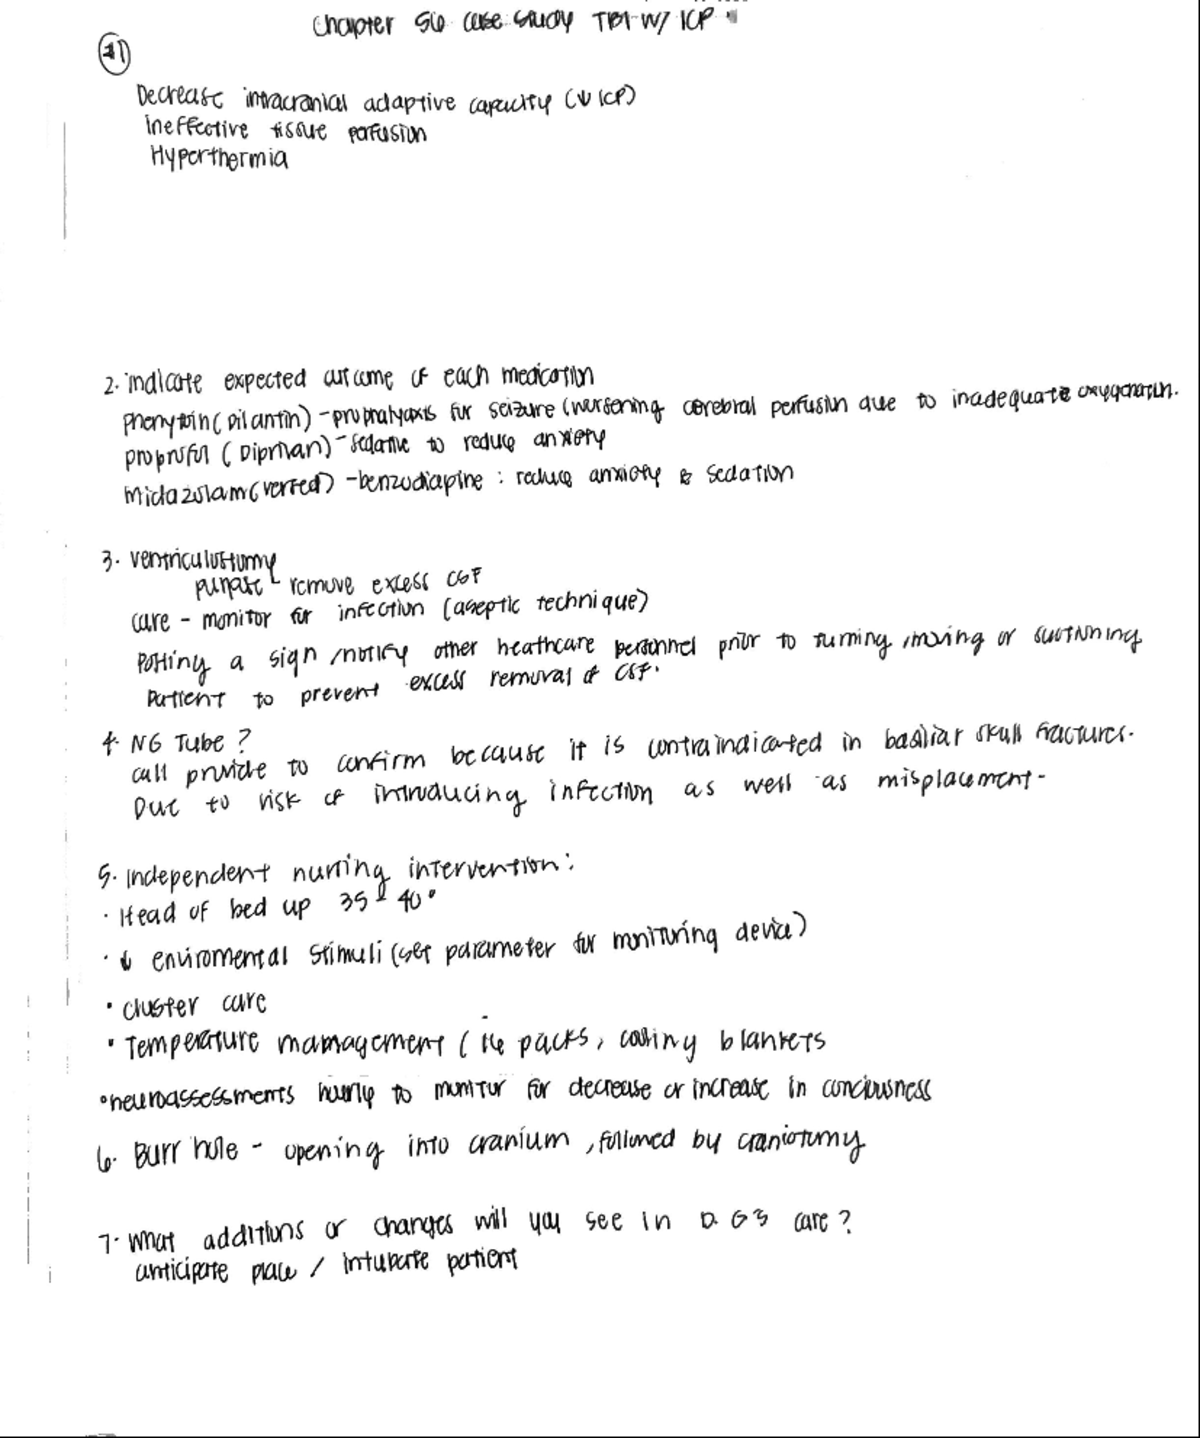 Chapter 56 case study TBI W/ ICP
#1
Decrease intracranial adaptive capacity (↓ ICP)
ineffective tissue perfusion
Hyperthermia
2. indicate expected outcome of each medication
phenytoin (Dilantin) - prophalyaxis for seizure (worsening cerebral perfusion due to inadequate oxygenation.
propofol (Dipman) - sedative to reduce anxiety
midazolam (versed) - benzodiapine : reduce anxiety & sedation
3. ventriculostomy
purpose - remove excess CSF
care - monitor for infection (aseptic technique)
Potting a sign /notify other heathcare personnel prior to turning, moving or suctioning
Patient to prevent excess removal of CSF.
4. NG Tube ?
call provide to confirm because it is contraindicated in basiliar skull fractures.
Due to risk of introducing infection as well as misplacement-
5. Independent nursing intervention:
· Head of bed up 35 - 40°
· ↓ enviromental stimuli (set parameter for monitoring device)
· cluster care
· Temperature mamagement ( ice packs, cooling blankets
· neuroassessments hourly to monitor for decrease or increase in conciousness
6. Burr hole - opening into cranium, followed by craniotomy
7. What additions or changes will you see in D.G's care ?
anticipate place / intubate patient